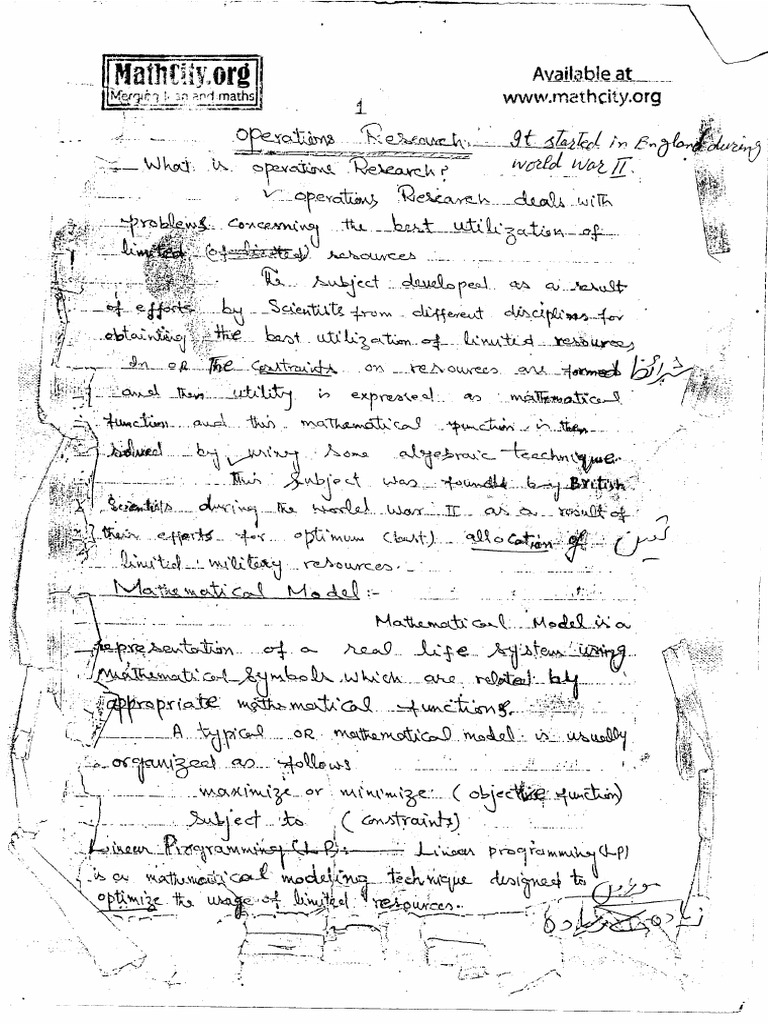 MathCity.org
Merging man and maths
Available at
www.mathcity.org
1
Operations Research. It started in England during
world war II.
What is operations Research?
operations Research deals with
problems concerning the best utilization of
limited resources
The subject developed as a result
of efforts by Scientists from different disciplines for
obtainting the best utilization of limited resources
In OR The constraints on resources are formed شرائط
and then utility is expressed as mathematical
function and this mathematical function is then
solved by using some algebraic teechnique.
This subject was founded by British
Scientists during the world war II as a result of
their efforts for optimum (best) allocation of
limited military resources.
Mathematical Model:-
Mathematical Model is a
representation of a real life system using
mathematical symbols which are related by
appropriate mathematical functions.
A typical OR mathematical model is usually
organized as follows
maximize or minimize (objective function)
subject to (constraints)
Linear Programming (LP):- Linear programming (LP)
is a mathematical modeling technique designed to
optimize the usage of limited resources.
زیادہ